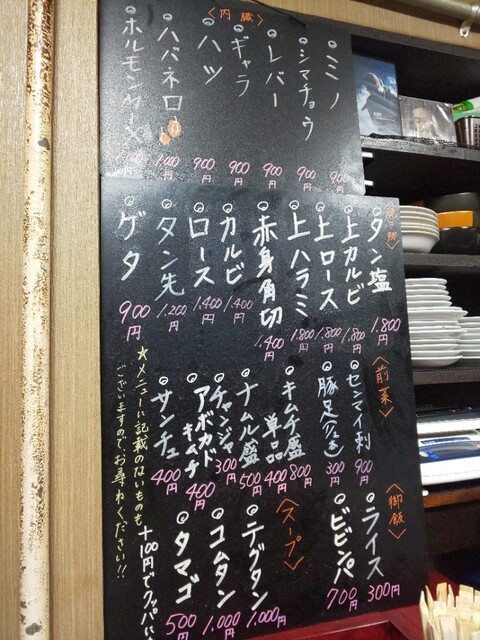 〈内臓〉
ミノ 900円
シマチョウ 900円
レバー 900円
ギャラ 900円
ハツ 900円
ハバネロ 1,000円
ホルモンMIX
〈焼き物〉
タン塩 1,800円
上カルビ 1,800円
上ロース 1,800円
上ハラミ 1,800円
赤身角切 1,400円
カルビ 1,400円
ロース 1,400円
タン先 1,200円
ゲタ 900円
〈前菜〉
センマイ刺 900円
豚足 300円
キムチ盛 800円
単品 400円
ナムル盛 500円
チャンジャ 300円
アボカドキムチ 400円
サンチュ 400円
〈御飯〉
ライス 300円
ビビンパ 700円
〈スープ〉
テグタン 1,000円
コムタン 1,000円
タマゴ 500円
+100円でクッパに
★メニューに記載のないものも
ございますのでお尋ねください!!